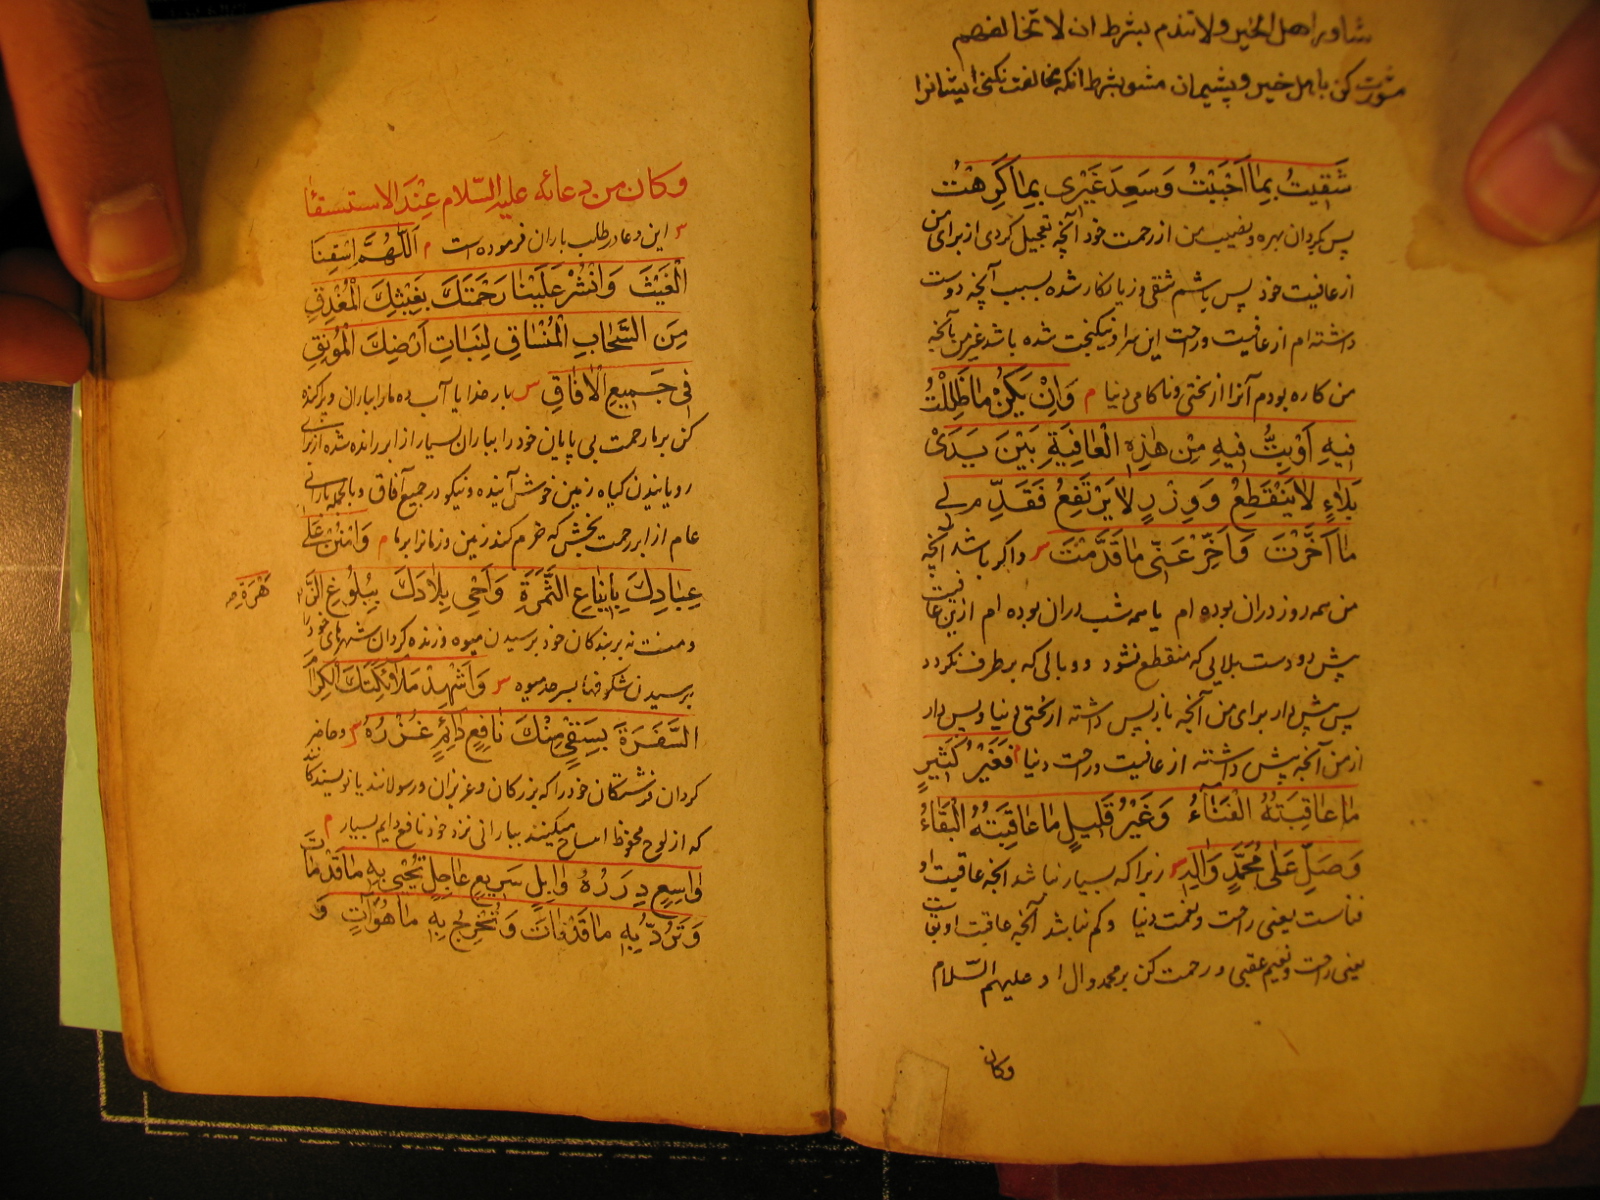 شاور اهل الخیر و لا تندم بشرط ان لا تخالفهم
مشورت کن با اهل خیر و پشیمان مشو بشرط آنکه مخالفت نکنی ایشانرا
شَقِیتُ بِمَا اَحْبَبْتُ وَسَعِدَ غَیْرِی بِمَا کَرِهْتُ
پس کردان بهره و نصیب من از رحمت خود آنچه تعجیل کردی از برای من
از عافیت خود پس باشم شقی و زیانکار شده بسبب آنچه دوست
داشته‌ام از عافیت و راحت این سرا و نیکبخت شده باشد غیر من بآنچه
من کاره بودم آنرا از سختی و ناکامی دنیا م وَاِنْ یَکُنْ مَا ظَلِلْتُ
فِیهِ اَوْ بِتُّ فِیهِ مِنْ هٰذِهِ الْعَافِیَةِ بَیْنَ یَدَیْ
بَلَاءٍ لَا یَنْقَطِعُ وَ وِزْرٍ لَا یَرْتَفِعُ فَقَدِّمْ لِی
مَا اَخَّرْتَ وَ اَخِّرْ عَنِّی مَا قَدَّمْتَ س و اکر باشد آنچه
من همه روز دران بوده ام یا همه شب دران بوده ام ازین عافیت
پیش دو دست بلایی که منقطع نشود و وبالی که بر طرف نکردد
پس پیش دار برای من آنچه باز پس داشته از سختی دنیا و پس دار
از من آنچه پیش داشته از عافیت و راحت دنیا م فَغَیْرُ کَثِیرٍ
مَا عَاقِبَتُهُ الْفَنَاءُ وَ غَیْرُ قَلِیلٍ مَا عَاقِبَتُهُ الْبَقَاءُ
وَ صَلِّ عَلَی مُحَمَّدٍ وَ آلِهِ س زیرا که بسیار نباشد آنچه عاقبت او
فناست یعنی راحت و نعمت دنیا و کم نباشد آنچه عاقبت او بقاست
یعنی راحت و نعیم عقبی و رحمت کن بر محمد و ال او علیهم السّلام
وکان
وَ کَانَ مِنْ دُعَائِهِ عَلَیْهِ السَّلَام عِنْدَ الاسْتِسْقَاء
س این دعا در طلب باران فرموده است م اَللّٰهُمَّ اسْقِنَا
الْغَیْثَ وَانْشُرْ عَلَیْنَا رَحْمَتَکَ بِغَیْثِکَ الْمُغْدِقِ
مِنَ السَّحَابِ الْمُنْسَاقِ لِنَبَاتِ اَرْضِکَ الْمُونِقِ
فِی جَمِیعِ الْآفَاقِ س بار خدایا آب ده ما را بباران و پراکنده
کن بر ما رحمت بی پایان خود را بباران بسیار از ابر رانده شده از برای
رویانیدن کیاه زمین خوش آینده و نیکو در جمیع آفاق و بالجمله بارانی
عام از ابر رحمت ببخش که خرم کند زمین و زمانرا بر ما م وَامْنُنْ عَلَی
عِبَادِکَ بِاِینَاعِ الثَّمَرَةِ وَ اَحْیِ بِلَادَکَ بِبُلُوغِ الزَّ
هْرَةِ صح
و منت نه بر بندکان خود برسیدن میوه و زنده کردان شهرهای خود را
برسیدن شکوفها بسر حد میوه س وَ اَشْهِدْ مَلَائِکَتَکَ الْکِرَامَ
السَّفَرَةَ بِسَقْیٍ مِنْکَ نَافِعٍ دَائِمٍ غُزْرُهُ س و حاضر
کردان فرشتکان خود را که بزرکان و عزیزان و رسولانند یا نویسندکانند
که از لوح محفوظ استنساخ میکنند ببارانی نزد خود نافع دایم بسیار م
وَاسِعٍ دِرَرُهُ وَابِلٍ سَرِیعٍ عَاجِلٍ تُحْیِی بِهِ مَا قَدْ مَاتَ
وَ تَرُدُّ بِهِ مَا قَدْ فَاتَ وَ تُخْرِجُ بِهِ مَا هُوَ آتٍ وَ